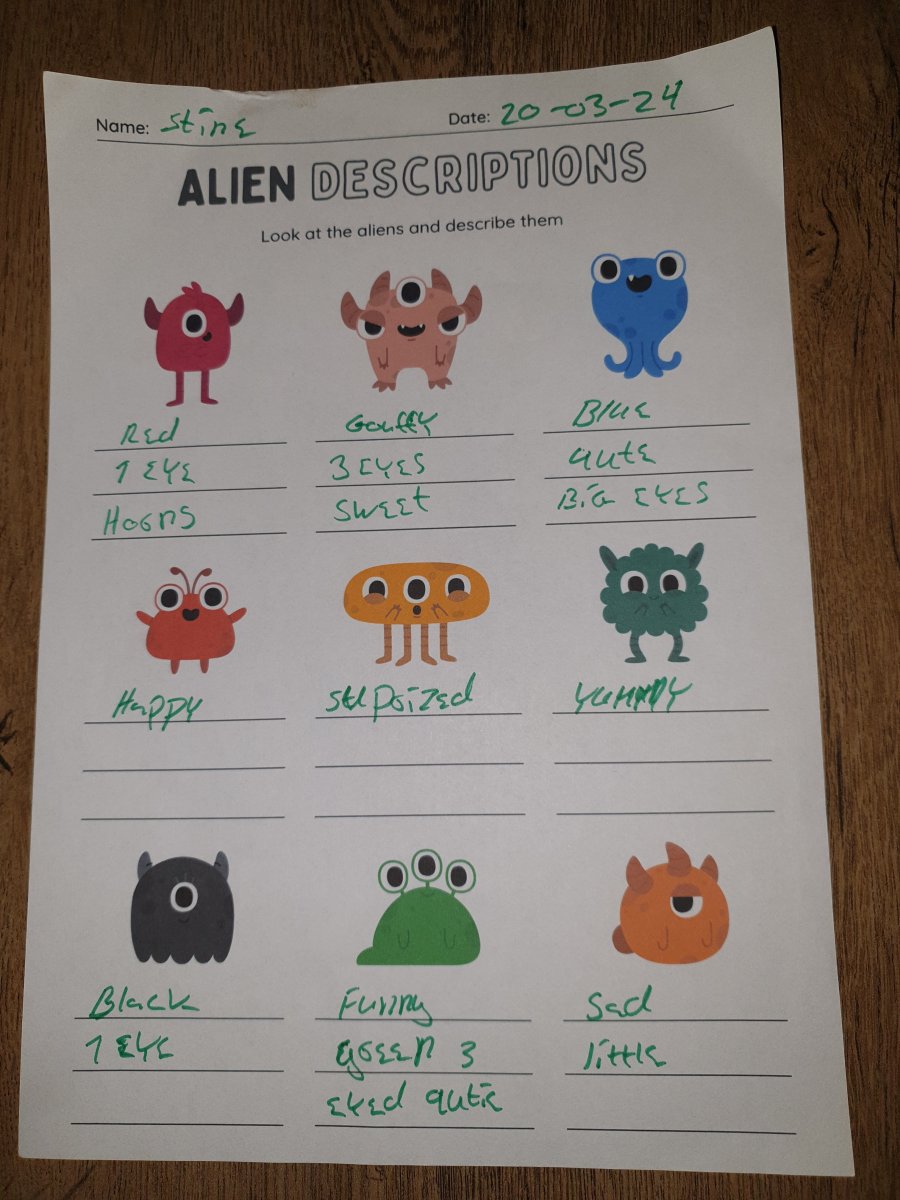 Name: Stine Date: 20-03-24
ALIEN DESCRIPTIONS
Look at the aliens and describe them
Red Gouffy Blue
1 EYE 3 EYES qute
Hoorns Sweet BiG EYES
Happy surprized yummy
Black Funny Sad
1 EYE green 3 little
eyed qutie